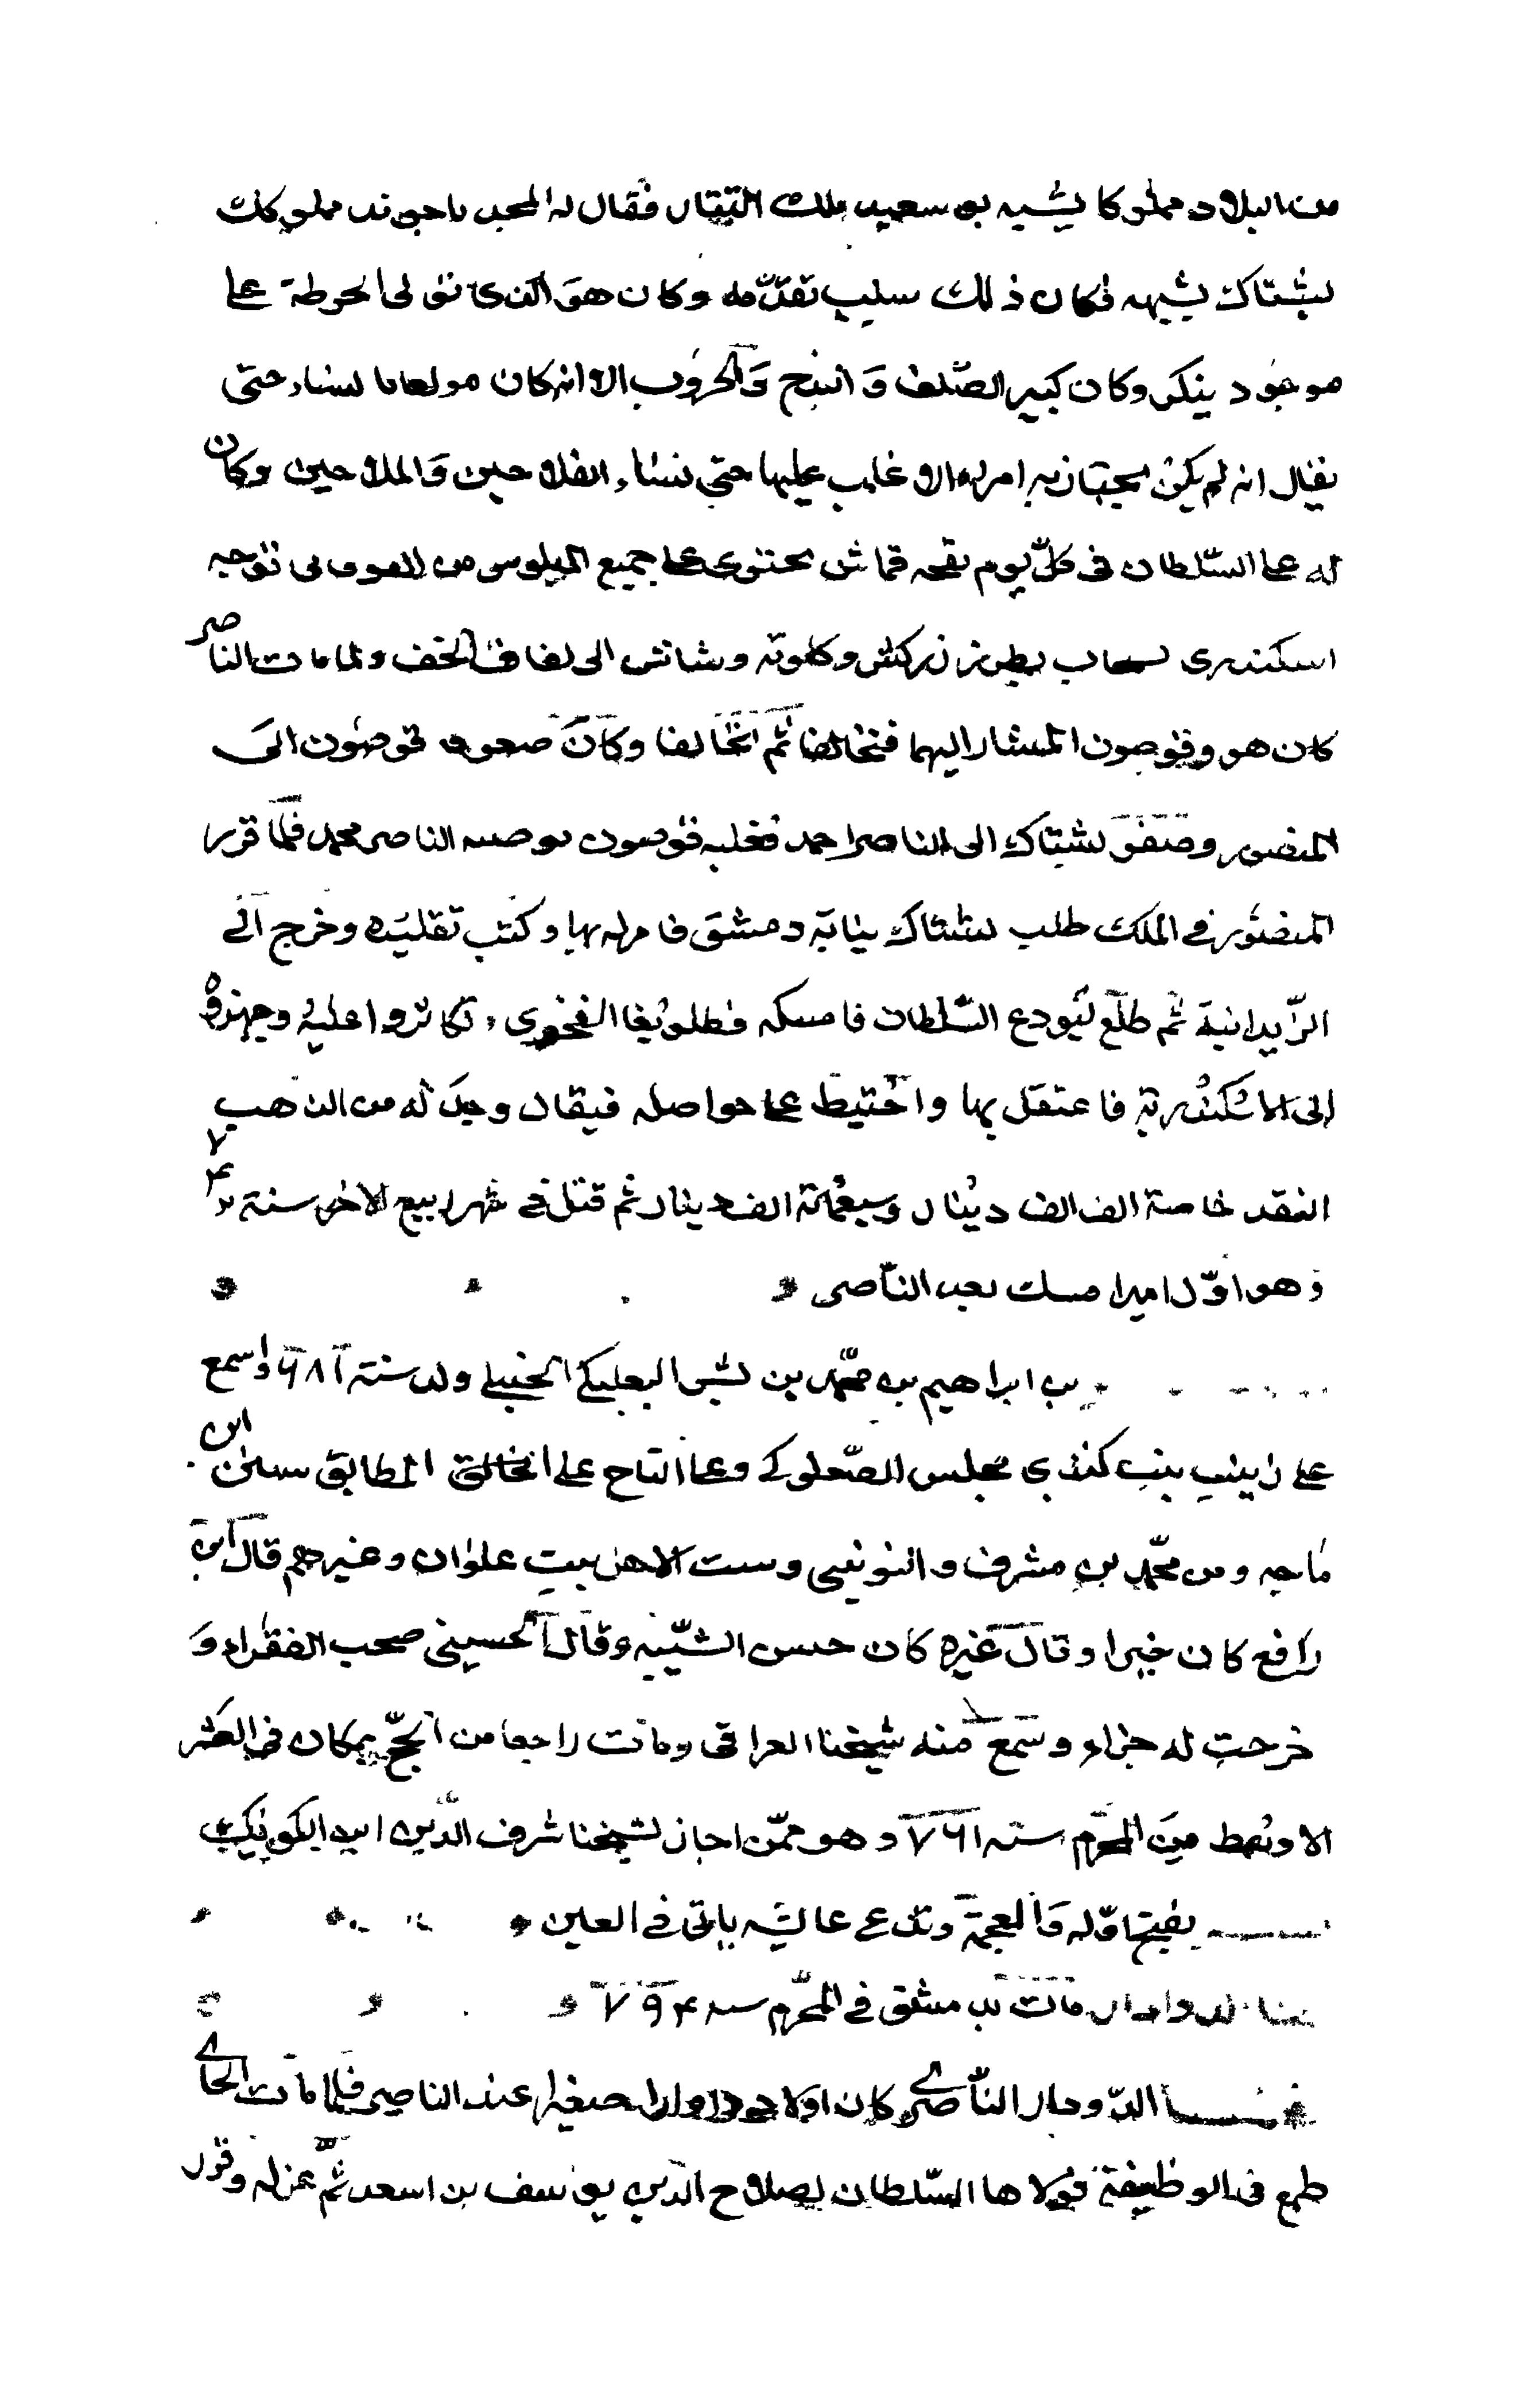 من البلاد مملوكا يشبه بو سعيد ملك التتار فقال له المجد يا خوند مملوكك
بشتاك يشبهه فكان ذلك سبب تقدمه وكان هو الذي تولى الحوطة على
موجود ينكز وكان كبير الصلف و الا انه كان مولعا بالنساء حتى
يقال انه لم يكن يجتاز به امراه الا غلب عليها حتى نساء الفلاحين والملاحين وكان
له على السلطان في كل يوم بقجه قماش يحتوي على جميع الملبوس من
اسكندري بطرز زركش وكلوته وشاش الى لفافة الخف ولما مات الناصر
كان هو وقوصون المشار اليهما فتحالفا ثم اتخالفا وكان قوصون الى
المنصور وصفو بشتاك الى الناصر احمد فغلبه قوصون بوصيه الناصر محمد فلما قرر
المنصور في الملك طلب بشتاك نيابة دمشق فامر له بها وكتب تقليده وخرج الى
الزيدانية ثم طلع ليودع السلطان فامسكه قطلوبغا الفخري وتكاثروا عليه وجهزوه
الى الاسكندرية فاعتقل بها واحتيط على حواصله فيقال وجد له من الذهب
النقد خاصة الف الف دينار وسبعمائة الف دينار ثم قتل في شهر ربيع الاخر سنة ٧٤٢
وهو اول امير امسك بعد الناصر
بن ابراهيم بن محمد بن بشر البعلبكي الحنبلي ولد سنة ٦٨١ واسمع
على زينب بنت كندي مجلس الصعلوكي وعلى التاج عبد الخالق المطابق سنن ابن
ماجه ومن محمد بن مشرف واليونيني وست الاهل بيت علوان وغيرهم قال ابن
رافع كان خيرا وقال غيره كان حسن الشيبه وقال الحسيني صحب الفقراء و
خرجت له جزاء وسمع منه شيخنا العراقي ومات راجعا من الحج بمكان في العشر
الاوسط من المحرم سنه ٧٦١ وهو ممن اجاز لشيخنا شرف الدين ابن الكويك
بفتح اوله والمعجمة وتدعى عائشه ياتي في العين
مات بدمشق في المحرم سنه ٧٩٤
الدوادار الناصري كان اولا صغيرا عند الناصر فلما مات الحاي
طمع في الوظيفة فولاها السلطان لصلاح الدين يوسف بن اسعد ثم عزله وقرر